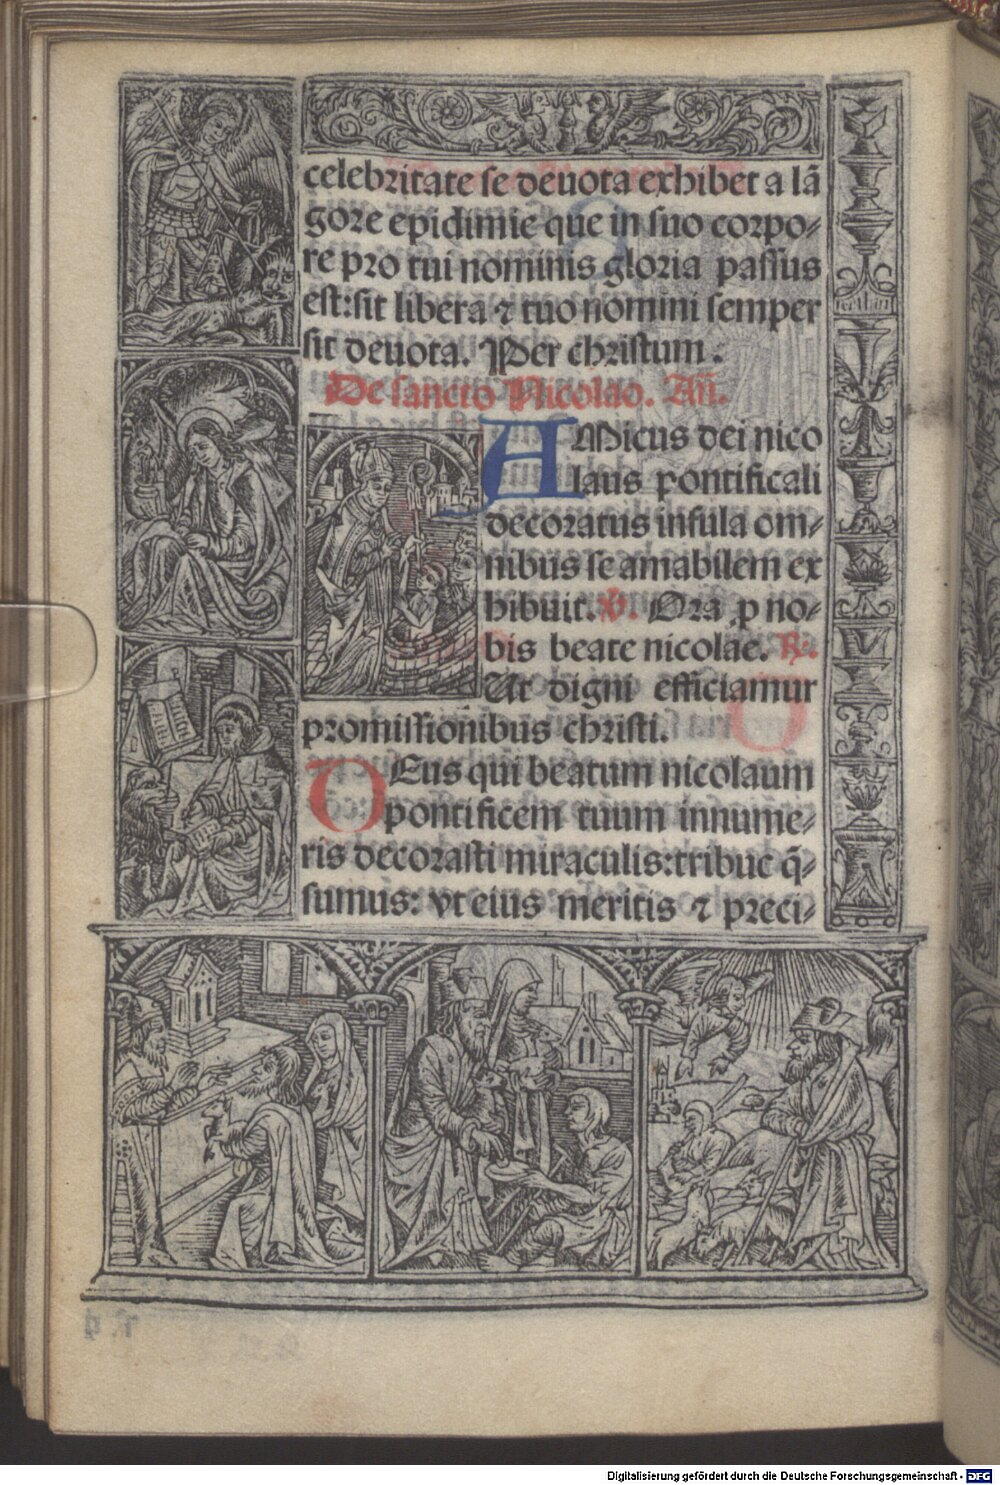 celebritate se deuota exhibet a lā
gore epidimie que in suo corpo-
re pro tui nominis gloria passus
est: sit libera ⁊ tuo nomini semper
sit deuota. Per christum.
De sancto Nicolao. Añ.
AMicus dei nico
laus pontificali
decoratus infula om-
nibus se amabilem ex
hibuit. ℣. Ora ꝓ no-
bis beate nicolae. ℟.
Ut digni efficiamur
promissionibus christi.
DEus qui beatum nicolaum
pontificem tuum innume-
ris decorasti miraculis: tribue q̄-
sumus: vt eius meritis ⁊ preci-
Digitalisierung gefördert durch die Deutsche Forschungsgemeinschaft - DFG